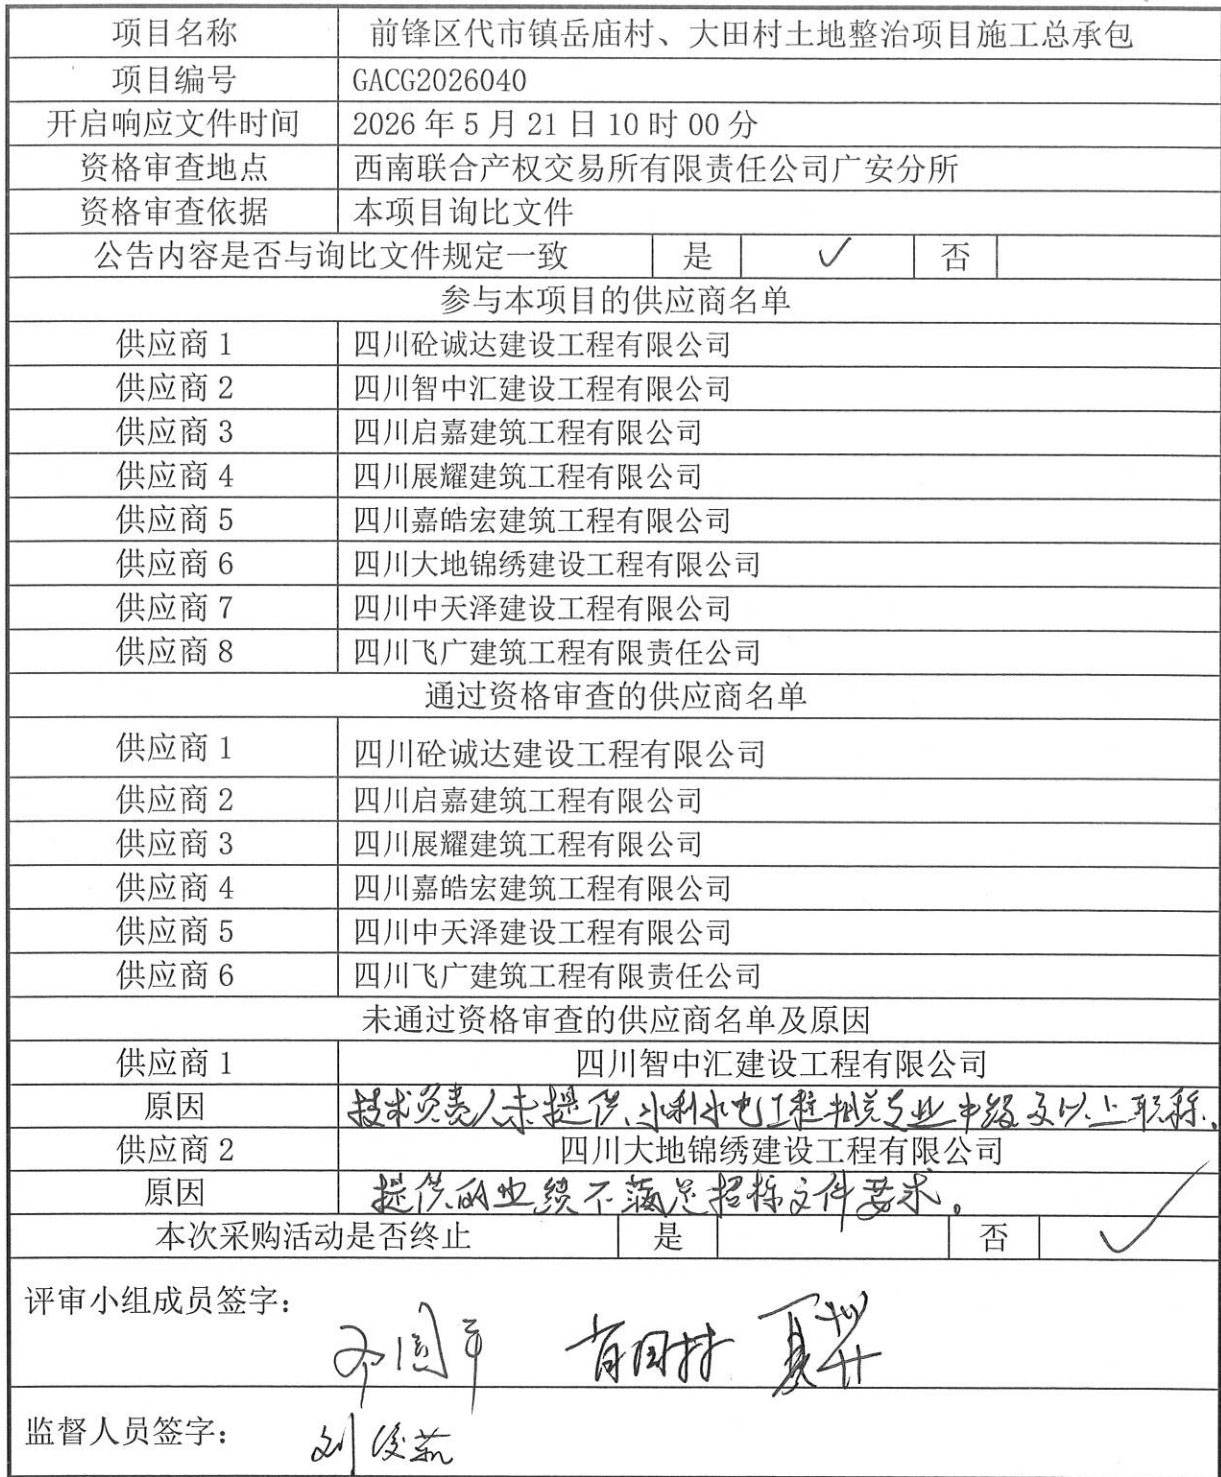 项目名称 前锋区代市镇岳庙村、大田村土地整治项目施工总承包
项目编号 GACG2026040
开启响应文件时间 2026 年 5 月 21 日 10 时 00 分
资格审查地点 西南联合产权交易所有限责任公司广安分所
资格审查依据 本项目询比文件
公告内容是否与询比文件规定一致 是 ✓ 否
参与本项目的供应商名单
供应商 1 四川砼诚达建设工程有限公司
供应商 2 四川智中汇建设工程有限公司
供应商 3 四川启嘉建筑工程有限公司
供应商 4 四川展耀建筑工程有限公司
供应商 5 四川嘉皓宏建筑工程有限公司
供应商 6 四川大地锦绣建设工程有限公司
供应商 7 四川中天泽建设工程有限公司
供应商 8 四川飞广建筑工程有限责任公司
通过资格审查的供应商名单
供应商 1 四川砼诚达建设工程有限公司
供应商 2 四川启嘉建筑工程有限公司
供应商 3 四川展耀建筑工程有限公司
供应商 4 四川嘉皓宏建筑工程有限公司
供应商 5 四川中天泽建设工程有限公司
供应商 6 四川飞广建筑工程有限责任公司
未通过资格审查的供应商名单及原因
供应商 1 四川智中汇建设工程有限公司
原因 技术负责人未提供水利水电工程相关专业中级及以上职称.
供应商 2 四川大地锦绣建设工程有限公司
原因 提供的业绩不满足招标文件要求。
本次采购活动是否终止 是 否 ✓
评审小组成员签字：
监督人员签字： 刘